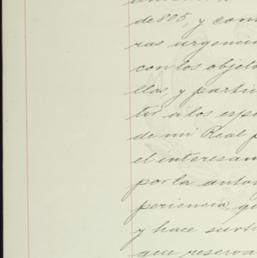 de 805, y con
ras urgencia
con los objeto
llas, y partic
tir á los esp
de mi Real p
el interesan
por la auto
periencia, q
y hace surti
que reserva